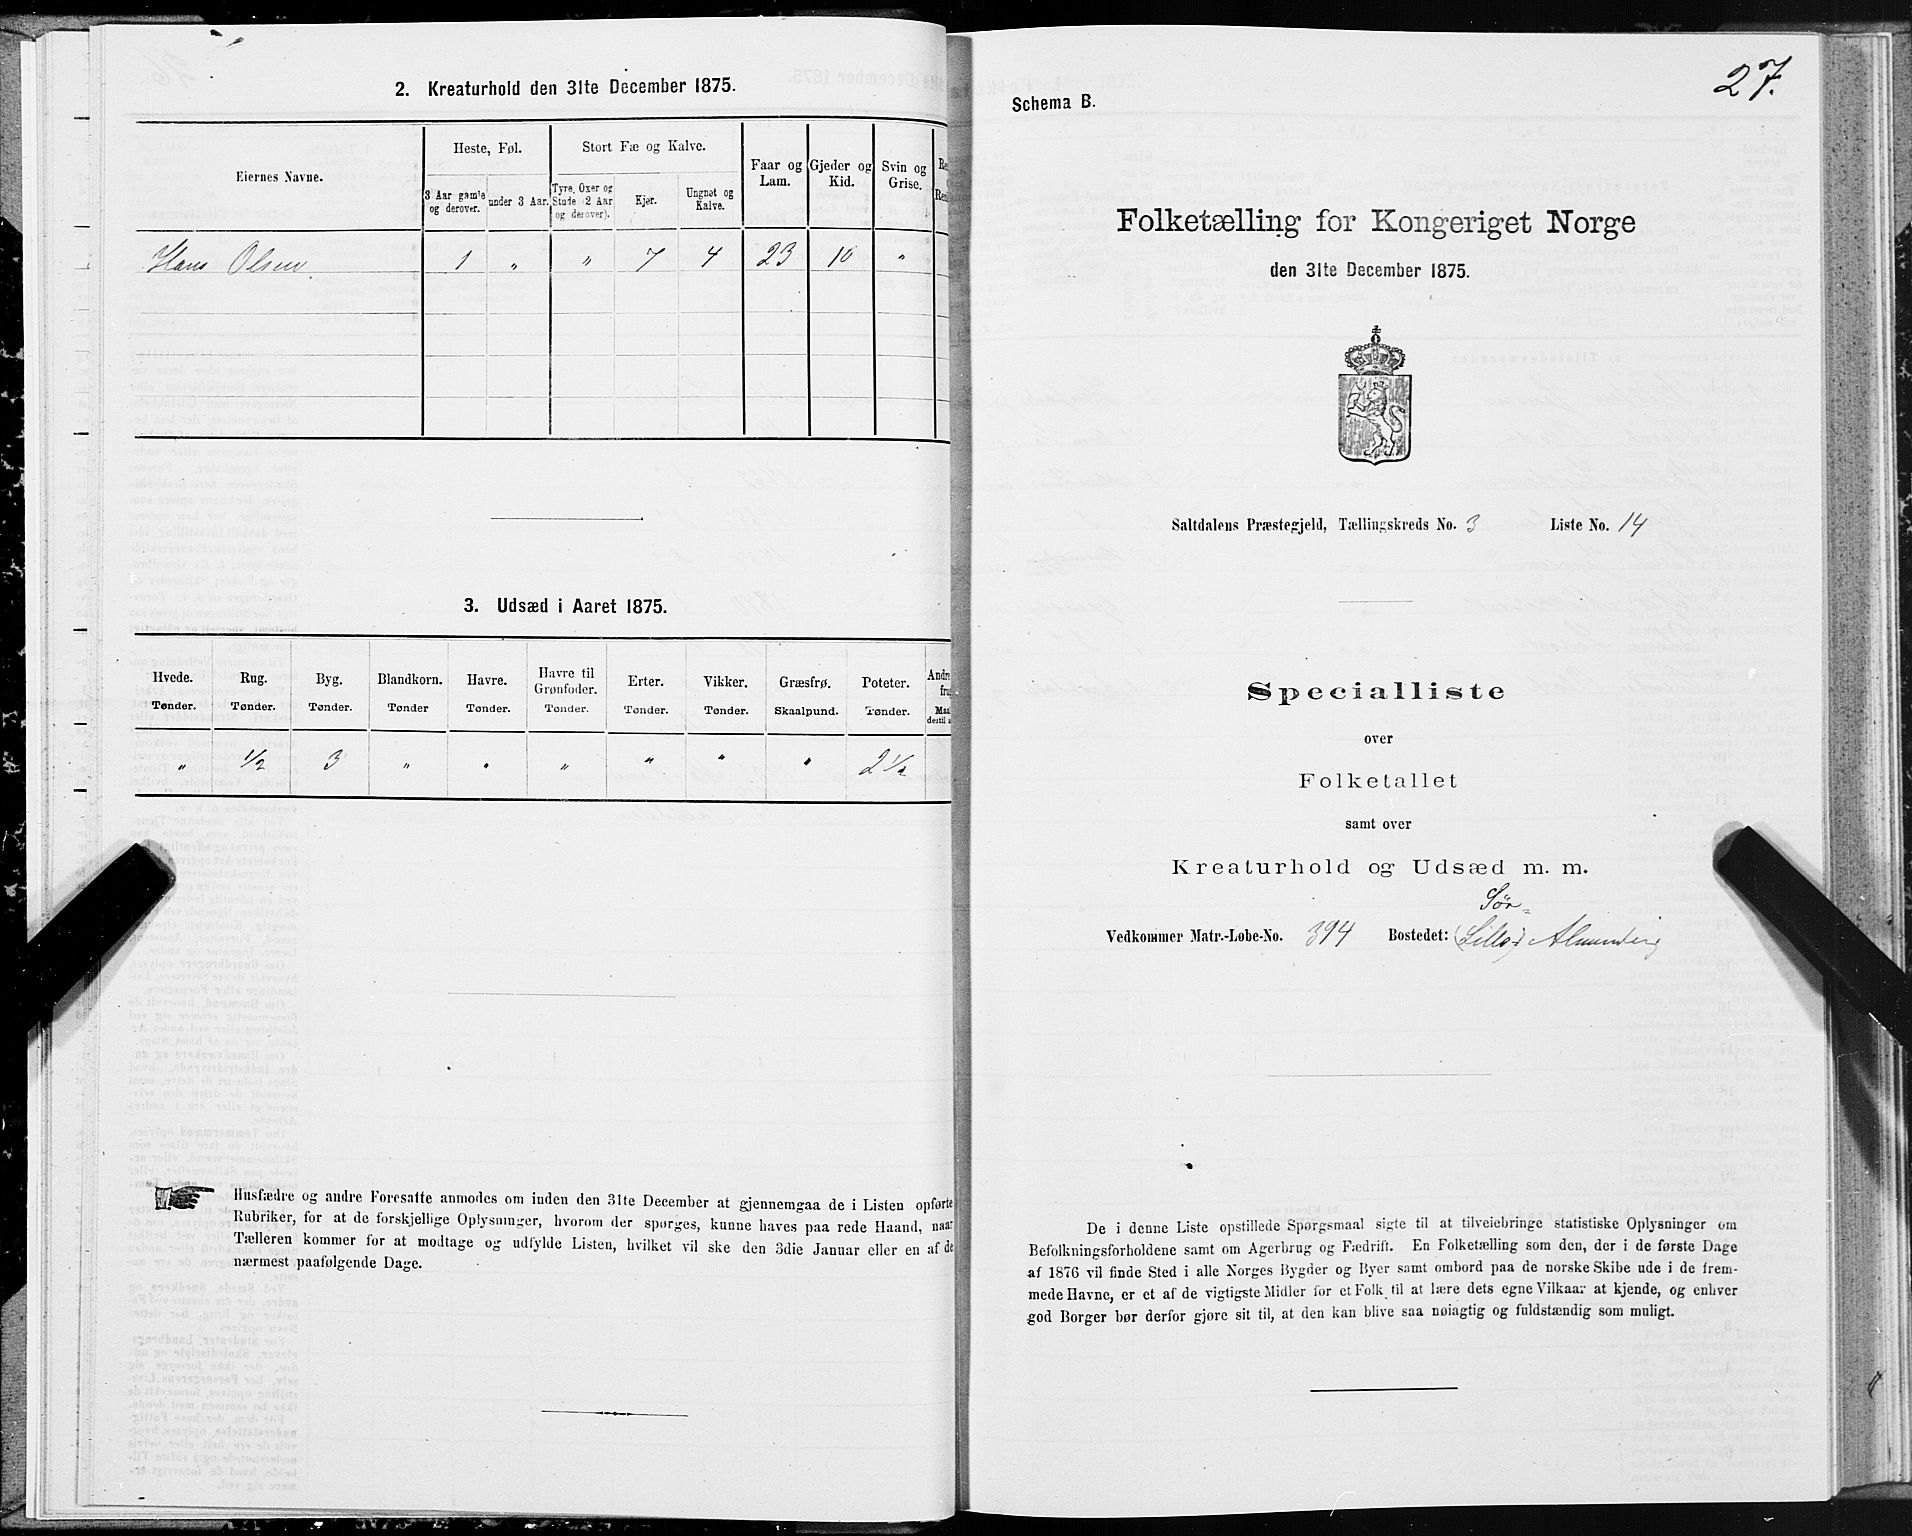 2. Kreaturhold den 31te December 1875.
Eiernes Navne.
Heste, Føl.
Stort Fæ og Kalve.
Faar og Lam.
Gjeder og Kid.
Svin og Grise.
3 Aar gamle og derover.
under 3 Aar.
Tyre, Oxer og Stude (2 Aar og derover).
Kjør.
Ungnøt og Kalve.
Hans Olsen. 1 " " 7 4 23 10 "
3. Udsæd i Aaret 1875.
Hvede. Rug. Byg. Blandkorn. Havre. Havre til Grønfoder. Erter. Vikker. Græsfrø. Poteter. Andre
Tønder. Tønder. Tønder. Tønder Tønder. Tønder. Tønder. Tønder. Skaalpund. Tønder.
" 1/2 3 " " " " " " 2 1/2
Husfædre og andre Foresatte anmodes om inden den 31te December at gjennemgaa de i Listen opførte
Rubriker, for at de forskjellige Oplysninger, hvorom der spørges, kunne haves paa rede Haand, naar
Tælleren kommer for at modtage og udfylde Listen, hvilket vil ske den 3die Januar eller en af de
nærmest paafølgende Dage.
27.
Schema B.
Folketælling for Kongeriget Norge
den 31te December 1875.
Saltdalens Præstegjeld, Tællingskreds No. 3 Liste No. 14
Specialliste
over
Folketallet
samt over
Kreaturhold og Udsæd m. m.
Sør-
Vedkommer Matr.-Løbe-No. 394 Bostedet: (Lille) Almenderg
De i denne Liste opstillede Spørgsmaal sigte til at tilveiebringe statistiske Oplysninger om
Befolkningsforholdene samt om Agerbrug og Fædrift. En Folketælling som den, der i de første Dage
af 1876 vil finde Sted i alle Norges Bygder og Byer samt ombord paa de norske Skibe ude i de frem-
mede Havne, er et af de vigtigste Midler for et Folk til at lære dets egne Vilkaar at kjende, og enhver
god Borger bør derfor gjøre sit til, at den kan blive saa nøiagtig og fuldstændig som muligt.